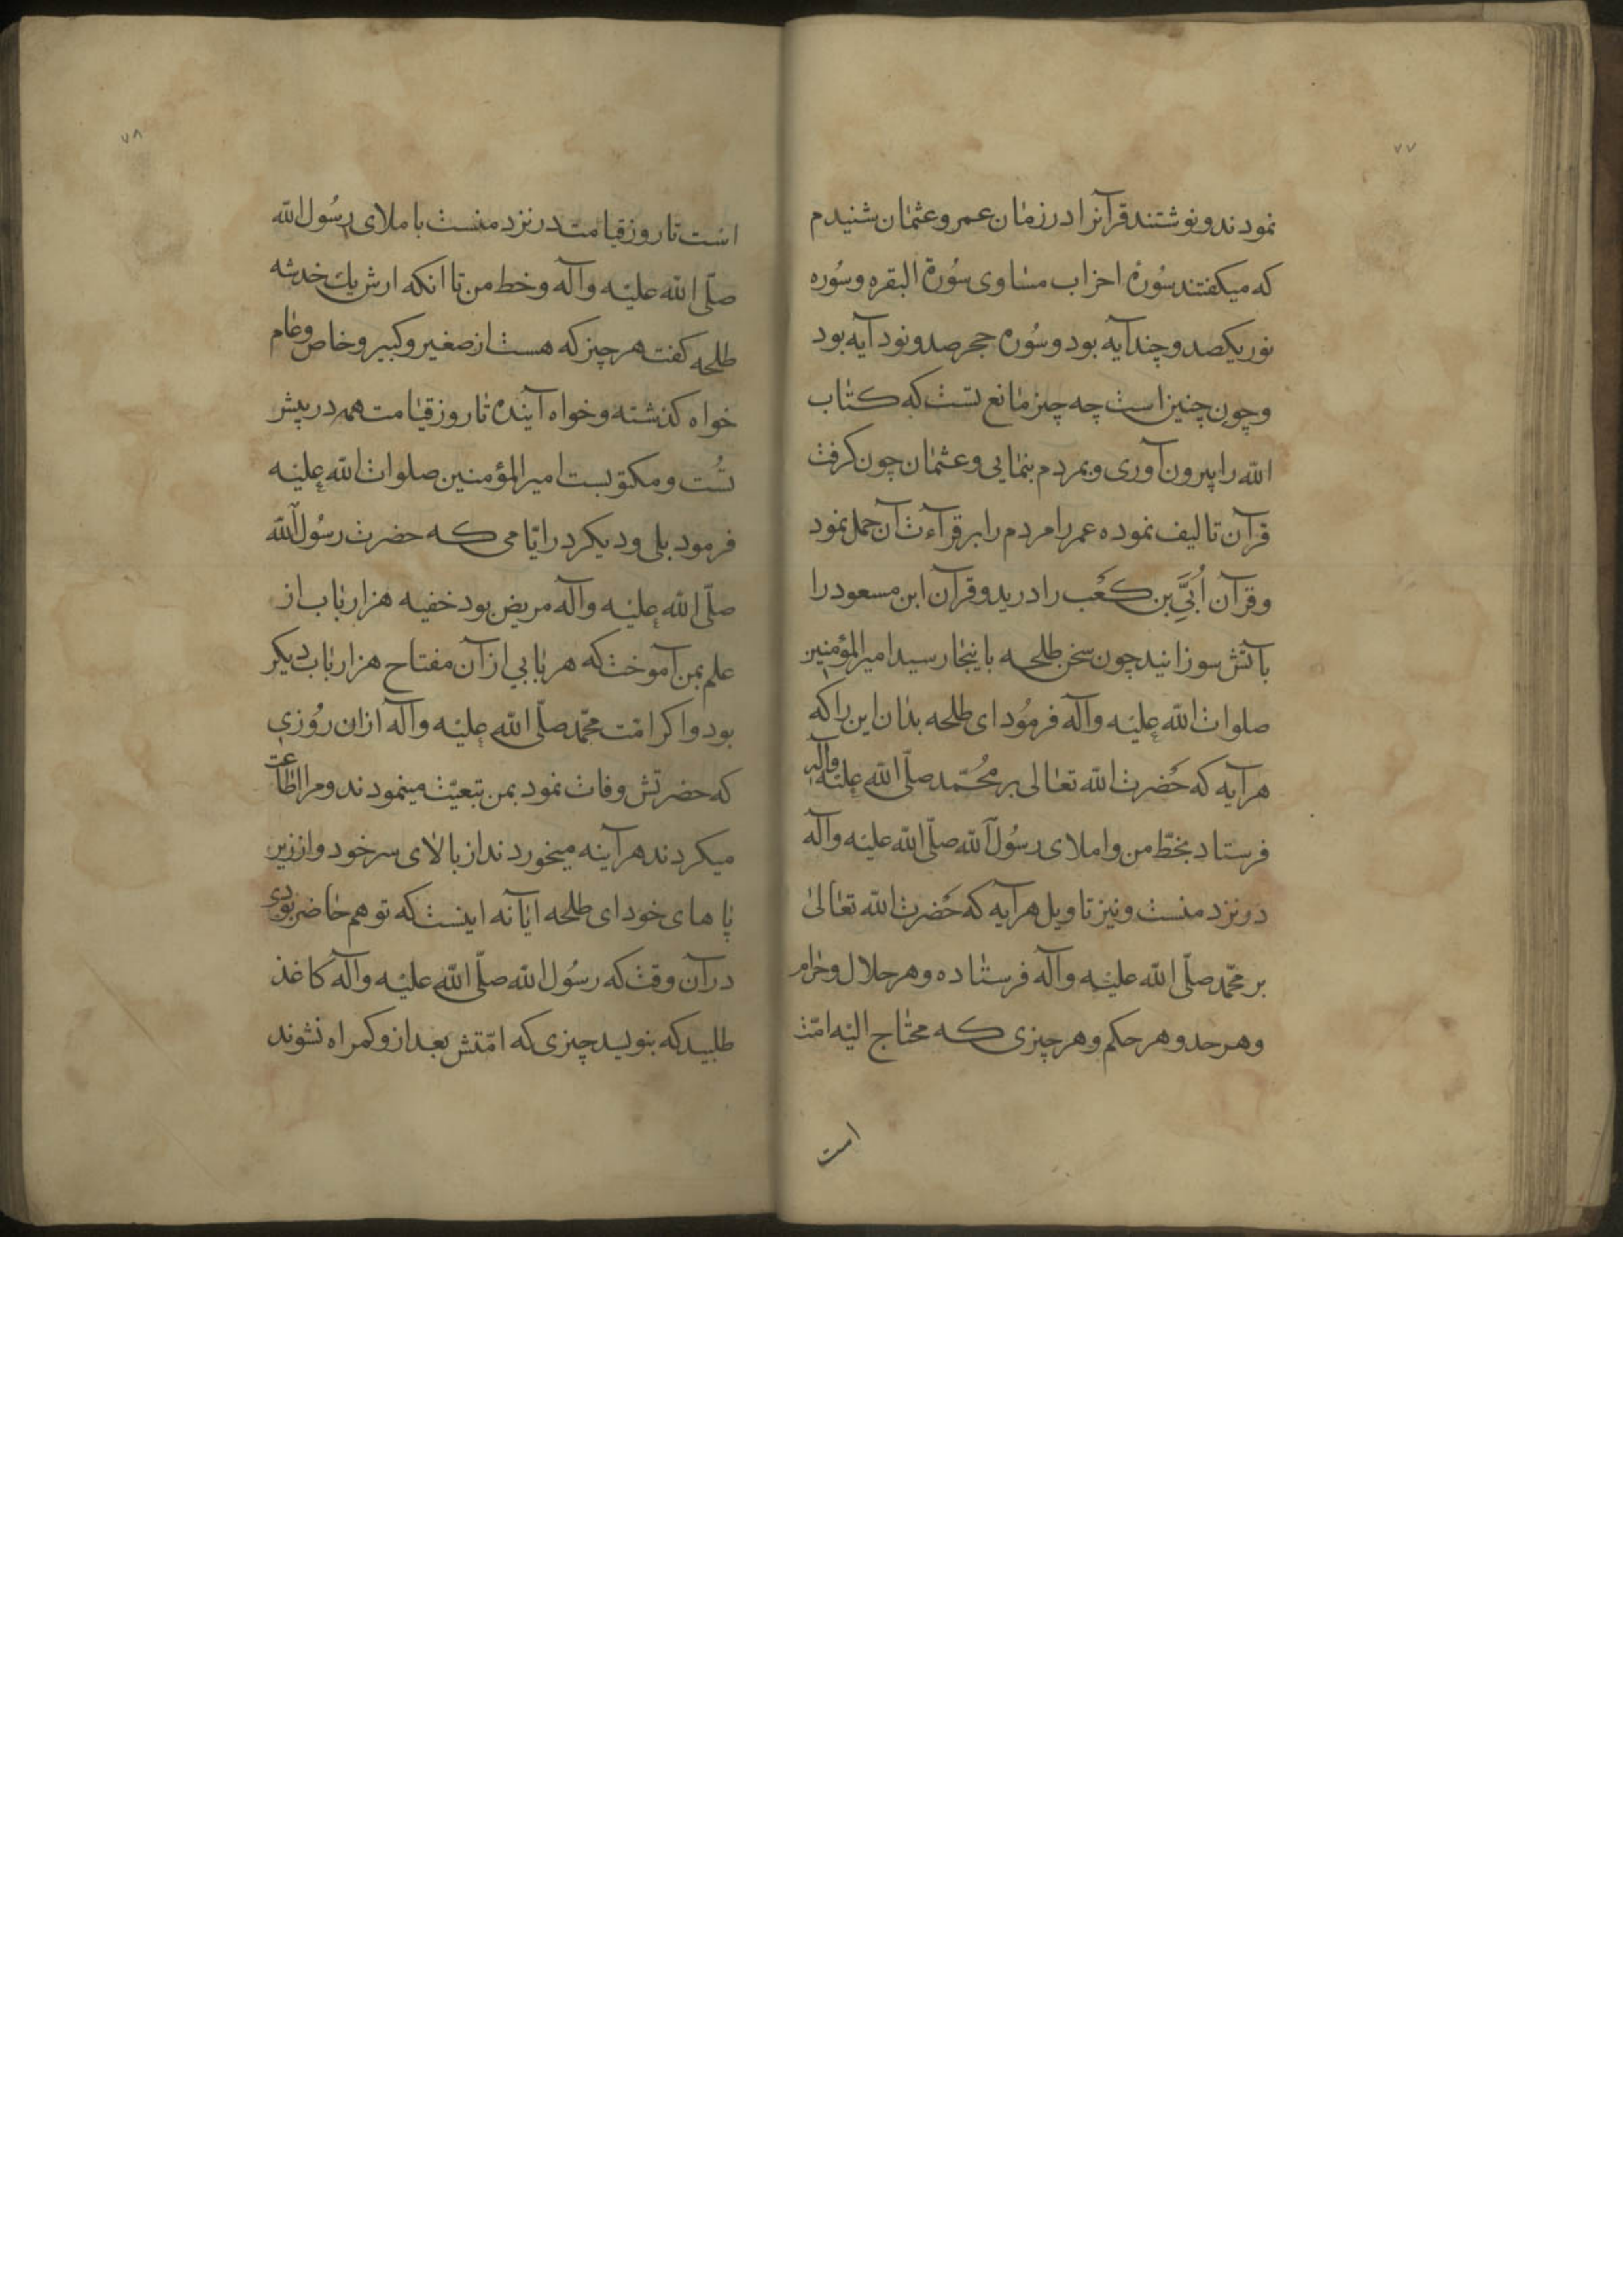 ۷۷
نمودند و نوشتند قرآنرا در زمان عمر و عثمان شنیدم
که میکفتند سُورهٔ احزاب مساوی سُورة البقره و سُوره
نور یکصد و چند آیه بود و سُوره حجر صد و نود آیه بود
و چون چنین است چه چیز مانع تست که کتاب
الله را بیرون آوری و بمردم بنمایی و عثمان چون کرفت
قرآن تالیف نموده عمر را مردم را بر قرآءت آن حمل نمود
و قرآن اُبَیِّ بن کَعْب را درید و قرآن ابن مسعود را
بآتش سوزانید چون سخن طلحه باینجا رسید امیرالمؤمنین
صلوات الله علیه وآله فرمُود ای طلحه بدان این را که
هر آیه که حَضرت الله تعالی بر محُمّد صلّی الله علیه وآله
فرستاد بخطّ من و املای رسُول الله صلّی الله علیه وآله
در نزد منست و نیز تاویل هر آیه که حَضرت الله تعالیٰ
بر محمّد صلّی الله علیه وآله فرستاده و هر حلال و حرام
و هر حد و هر حکم و هر چیزی که محتاج الیه امّت
است
۷۸
است تا روز قیامت در نزد منست باملای رسُول الله
صلّی الله علیه وآله و خط من تا انکه ارش یك خدشه
طلحه کفت هر چیز که هست از صغیر و کبیر و خاص و عام
خواه کذشته و خواه آینده تا روز قیامت همه در پیش
تُست و مکتوبست امیرالمؤمنین صلوات الله علیه
فرمود بلی و دیکر در ایّامی که حضرت رسُول الله
صلّی الله علیه وآله مریض بود خفیه هزار باب از
علم بمن آموخت که هر بابی از آن مفتاح هزار باب دیکر
بود و اکر امّت محمّد صلّی الله علیه وآله ازان رُوزی
که حضرتش وفات نمود بمن تبعیّت مینمودند و مرا اطاعت
میکردند هر آینه میخوردند از بالای سر خود و از زیر
پا های خود ای طلحه ایا نه اینست که تو هم حاضر بودی
در آن وقت که رسُول الله صلّی الله علیه وآله کاغذ
طلبید که بنویسد چیزی که امّتش بعد ازو کمراه نشوند